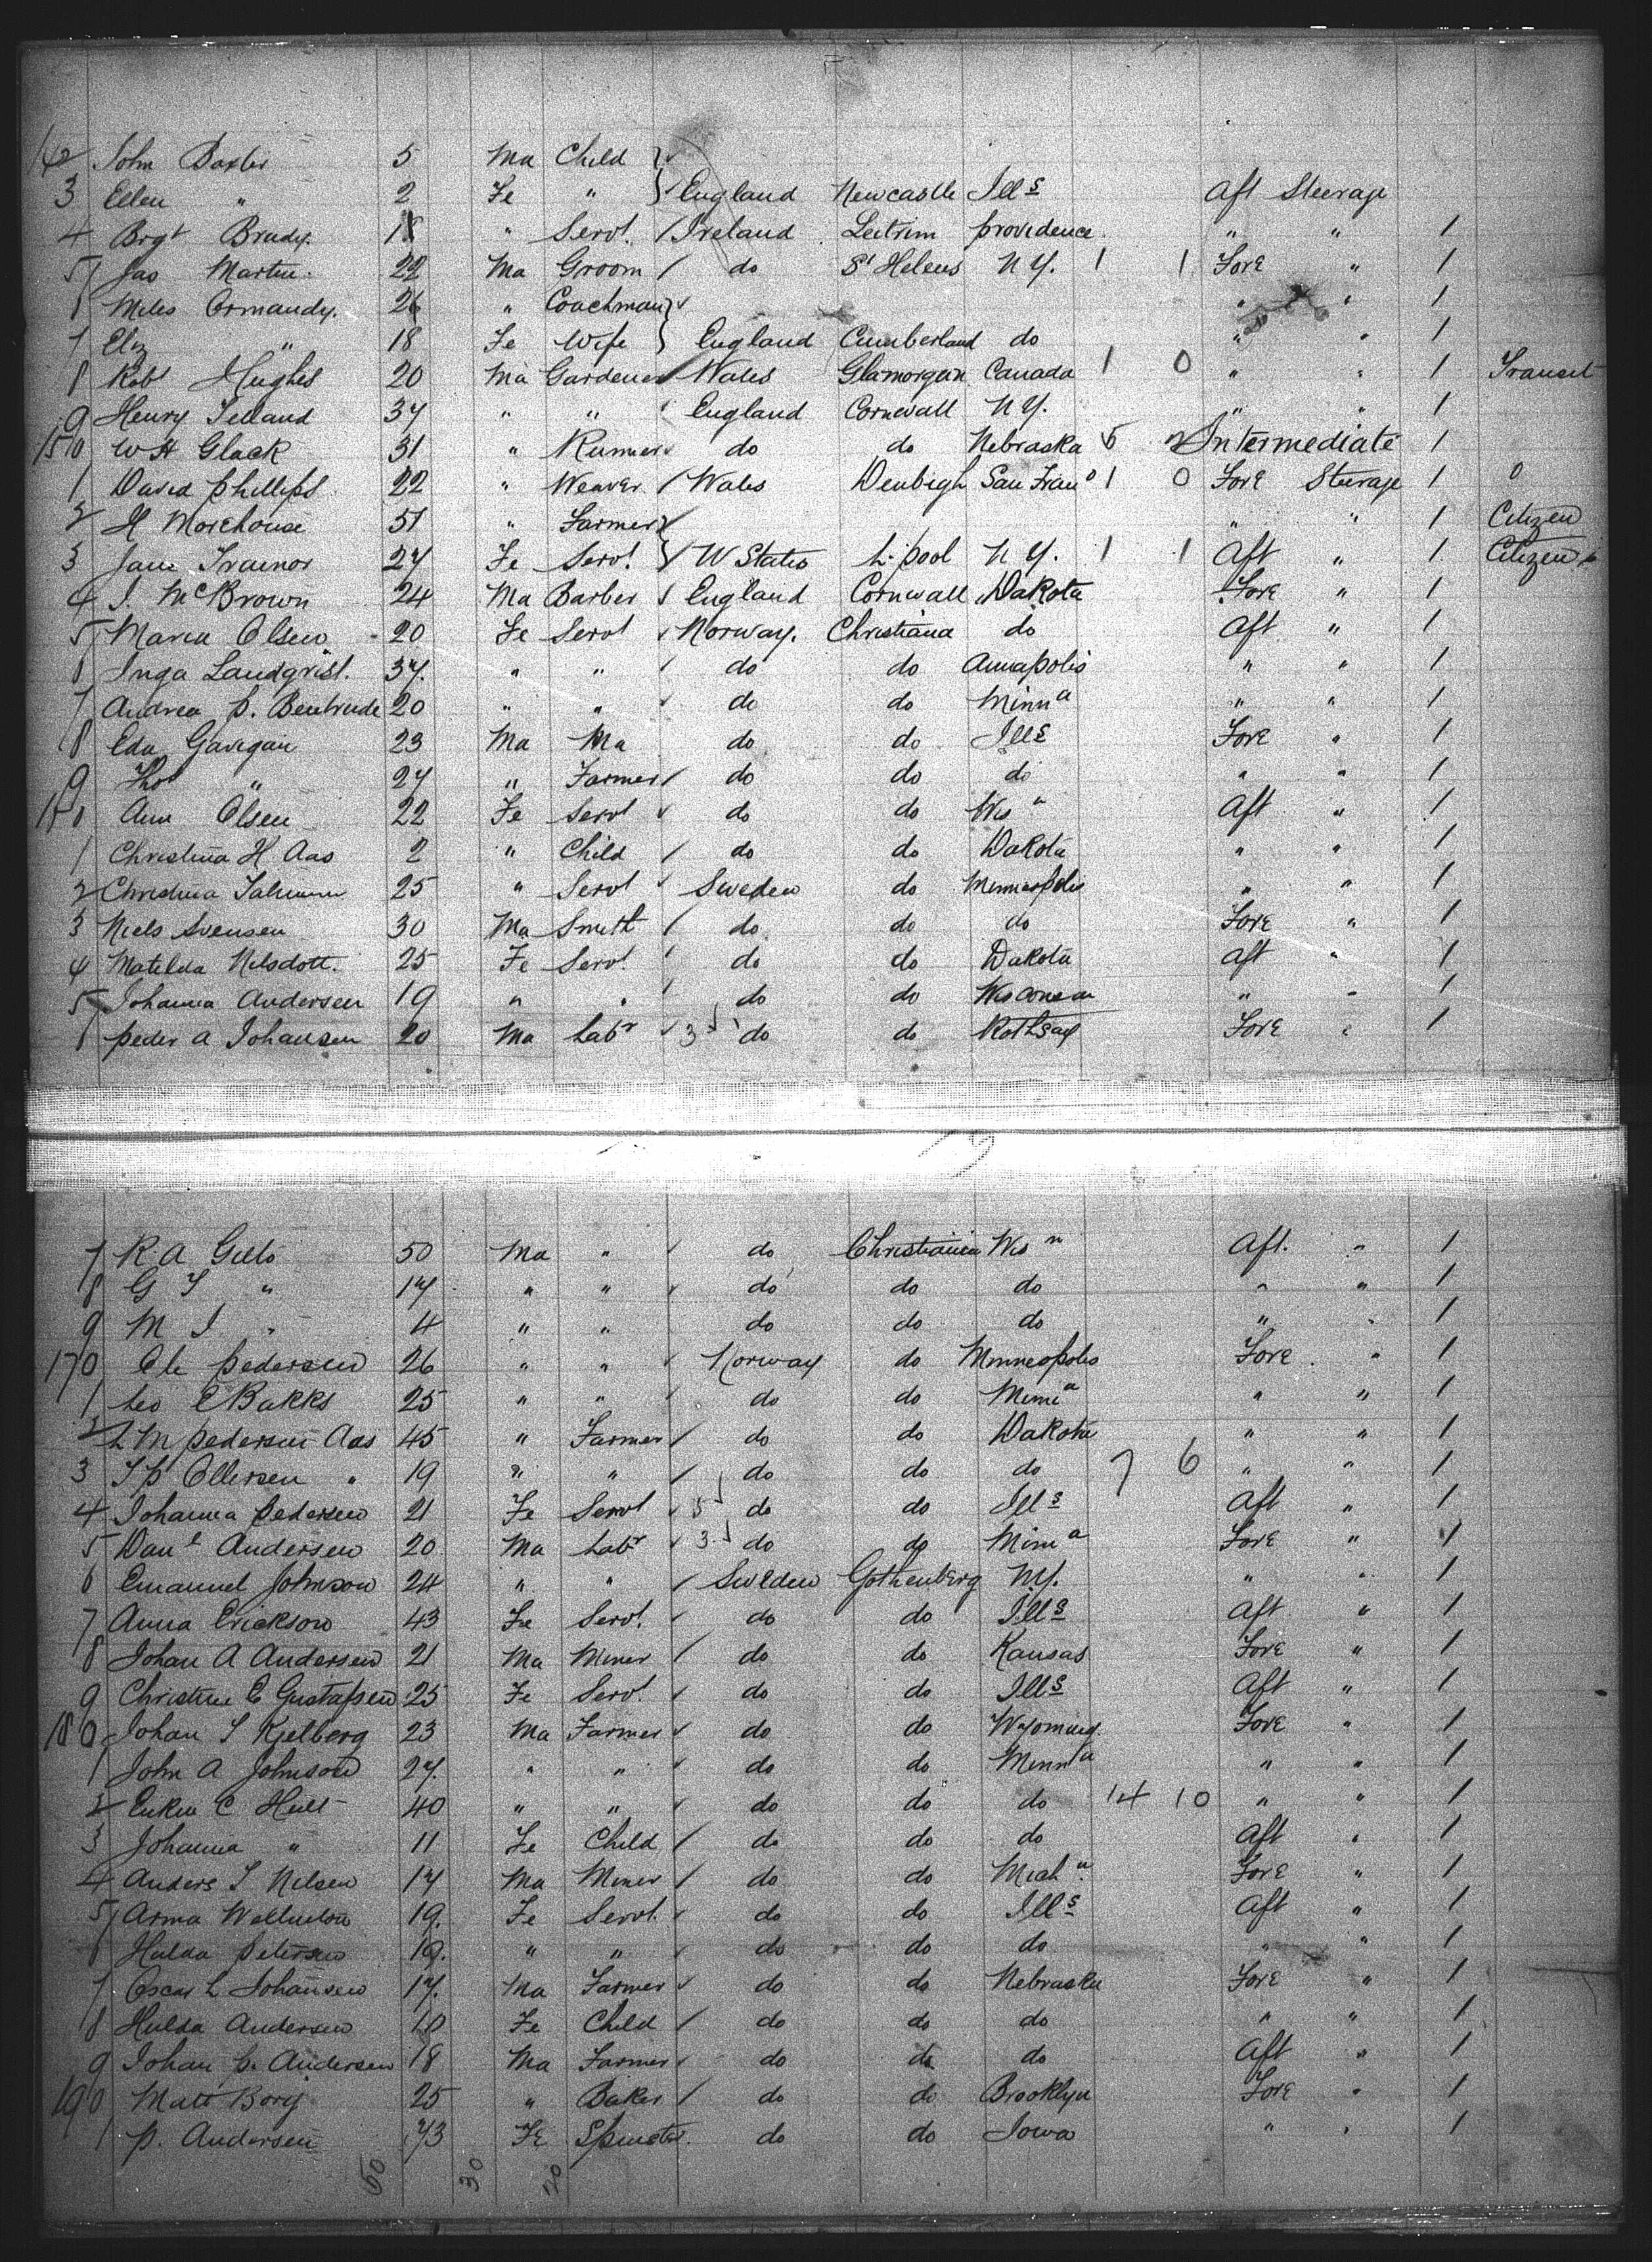 142 John Baxter 5 Ma Child
3 Ellen " 2 Fe " England Newcastle Ills Aft Steerage
4 Brgt Brady. 18 " Servt. Ireland Leitrim providence " " 1
5 Jas Martin 22 Ma Groom do St Helens N Y. 1 1 Fore " 1
6 Miles Ormandy. 26 " Coachman " " 1
7 Eliz " 18 Fe Wife England Cumberland do " " 1
8 Robt Hughes 20 Ma Gardener Wales Glamorgan Canada 1 0 " " 1 Transit
9 Henry 34 " " England Cornwall N Y. " " 1
150 W H Glack 31 " do do Nebraska 5 2 Intermediate 1
1 David phillips 22 " Weaver Wales Denbigh San Frano 1 0 Fore Steerage 1 0
2 H Morehouse 51 " Farmer " " 1 Citizen
3 Jane Trainor 24 Fe Servt. U States L-pool N Y. 1 1 Aft " 1 Citizen
4 J. McBrown 24 Ma Barber England Cornwall Dakota Fore " 1
5 Maria Olsen 20 Fe Servt Norway. Christiana do Aft " 1
6 Inga Landqvist. 34. " " do do Annapolis " " 1
7 Andrea p. 20 " " do do Minna " " 1
8 Edu Gavigan 23 Ma Ma do do Ills Fore " 1
9 Tho " 24 " Farmer do do do " " 1
160 Ann Olsen 22 Fe Servt do do Wisn Aft " 1
1 Christina H Aas 2 " Child do do Dakota " " 1
2 Christina 25 " Servt Sweden do Minneapolis " " 1
3 Niels Svensen 30 Ma Smith do do do Fore " 1
4 Matilda Nilsdott. 25 Fe Servt. do do Dakota Aft " 1
5 Johanna Andersen 19 " " do do Wisconsin " " 1
6 peder A Johansen 20 Ma Labr 3 do do Rothsay Fore " 1
7 R A 50 Ma " do Christiania Wisn Aft. " 1
8 G " 14 " " do do do " " 1
9 M " 4 " " do do do " " 1
170 Ole pedersen 26 " " Norway do Minneapolis Fore " 1
1 Leo E Bakks 25 " " do do Minna " " 1
2 L M pedersen Aas 45 " Farmer do do Dakota " " 1
3 Ellersen " 19 " " do do do 7 6 " " 1
4 Johanna pedersen 21 Fe Servt 3 do do Ills Aft " 1
5 Danl Andersen 20 Ma Labr 3 do do Minna Fore " 1
6 Emanuel Johnson 24 " " Sweden Gothenberg NY. " " 1
7 Anna Erickson 43 Fe Servt. do do Ills Aft " 1
8 Johan A Andersen 21 Ma Miner do do Kansas Fore " 1
9 Christine C Gustafsen 25 Fe Servt. do do Ills Aft " 1
180 Johan S Kjelberg 23 Ma Farmer do do Wyoming Fore " 1
1 John A Johnson 24. " " do do Minna " " 1
2 C Hult 40 " " do do do 14 10 " " 1
3 Johanna " 11 Fe Child do do do Aft " 1
4 Anders S Nilsen 14 Ma Miner do do Michn. Fore " 1
5 19. Fe Servt. do do Ills Aft " 1
6 Hulda petersen 19. " " do do do " " 1
7 Oscar L Johansen 17. Ma Farmer do do Nebraska Fore " 1
8 Hulda Andersen 10 Fe Child do do do " " 1
9 Johan p. Andersen 18 Ma Farmer do do do Aft " 1
190 Matt Borg 25 " Baker do do Brooklyn Fore " 1
1 p. Andersen 43 Fe Spinster. do do Iowa " " 1
60 30